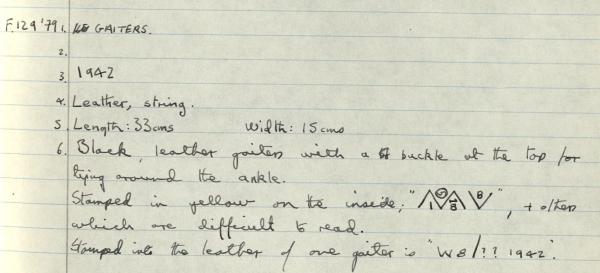 F.129'79 1. GAITERS.
2.
3. 1942
4. Leather, string.
5. Length: 33cms Width: 15cms
6. Black, leather gaiters with a buckle at the top for
tying around the ankle.
Stamped in yellow on the inside; " ", + others
which are difficult to read.
Stamped into the leather of one gaiter is "W8/?? 1942".